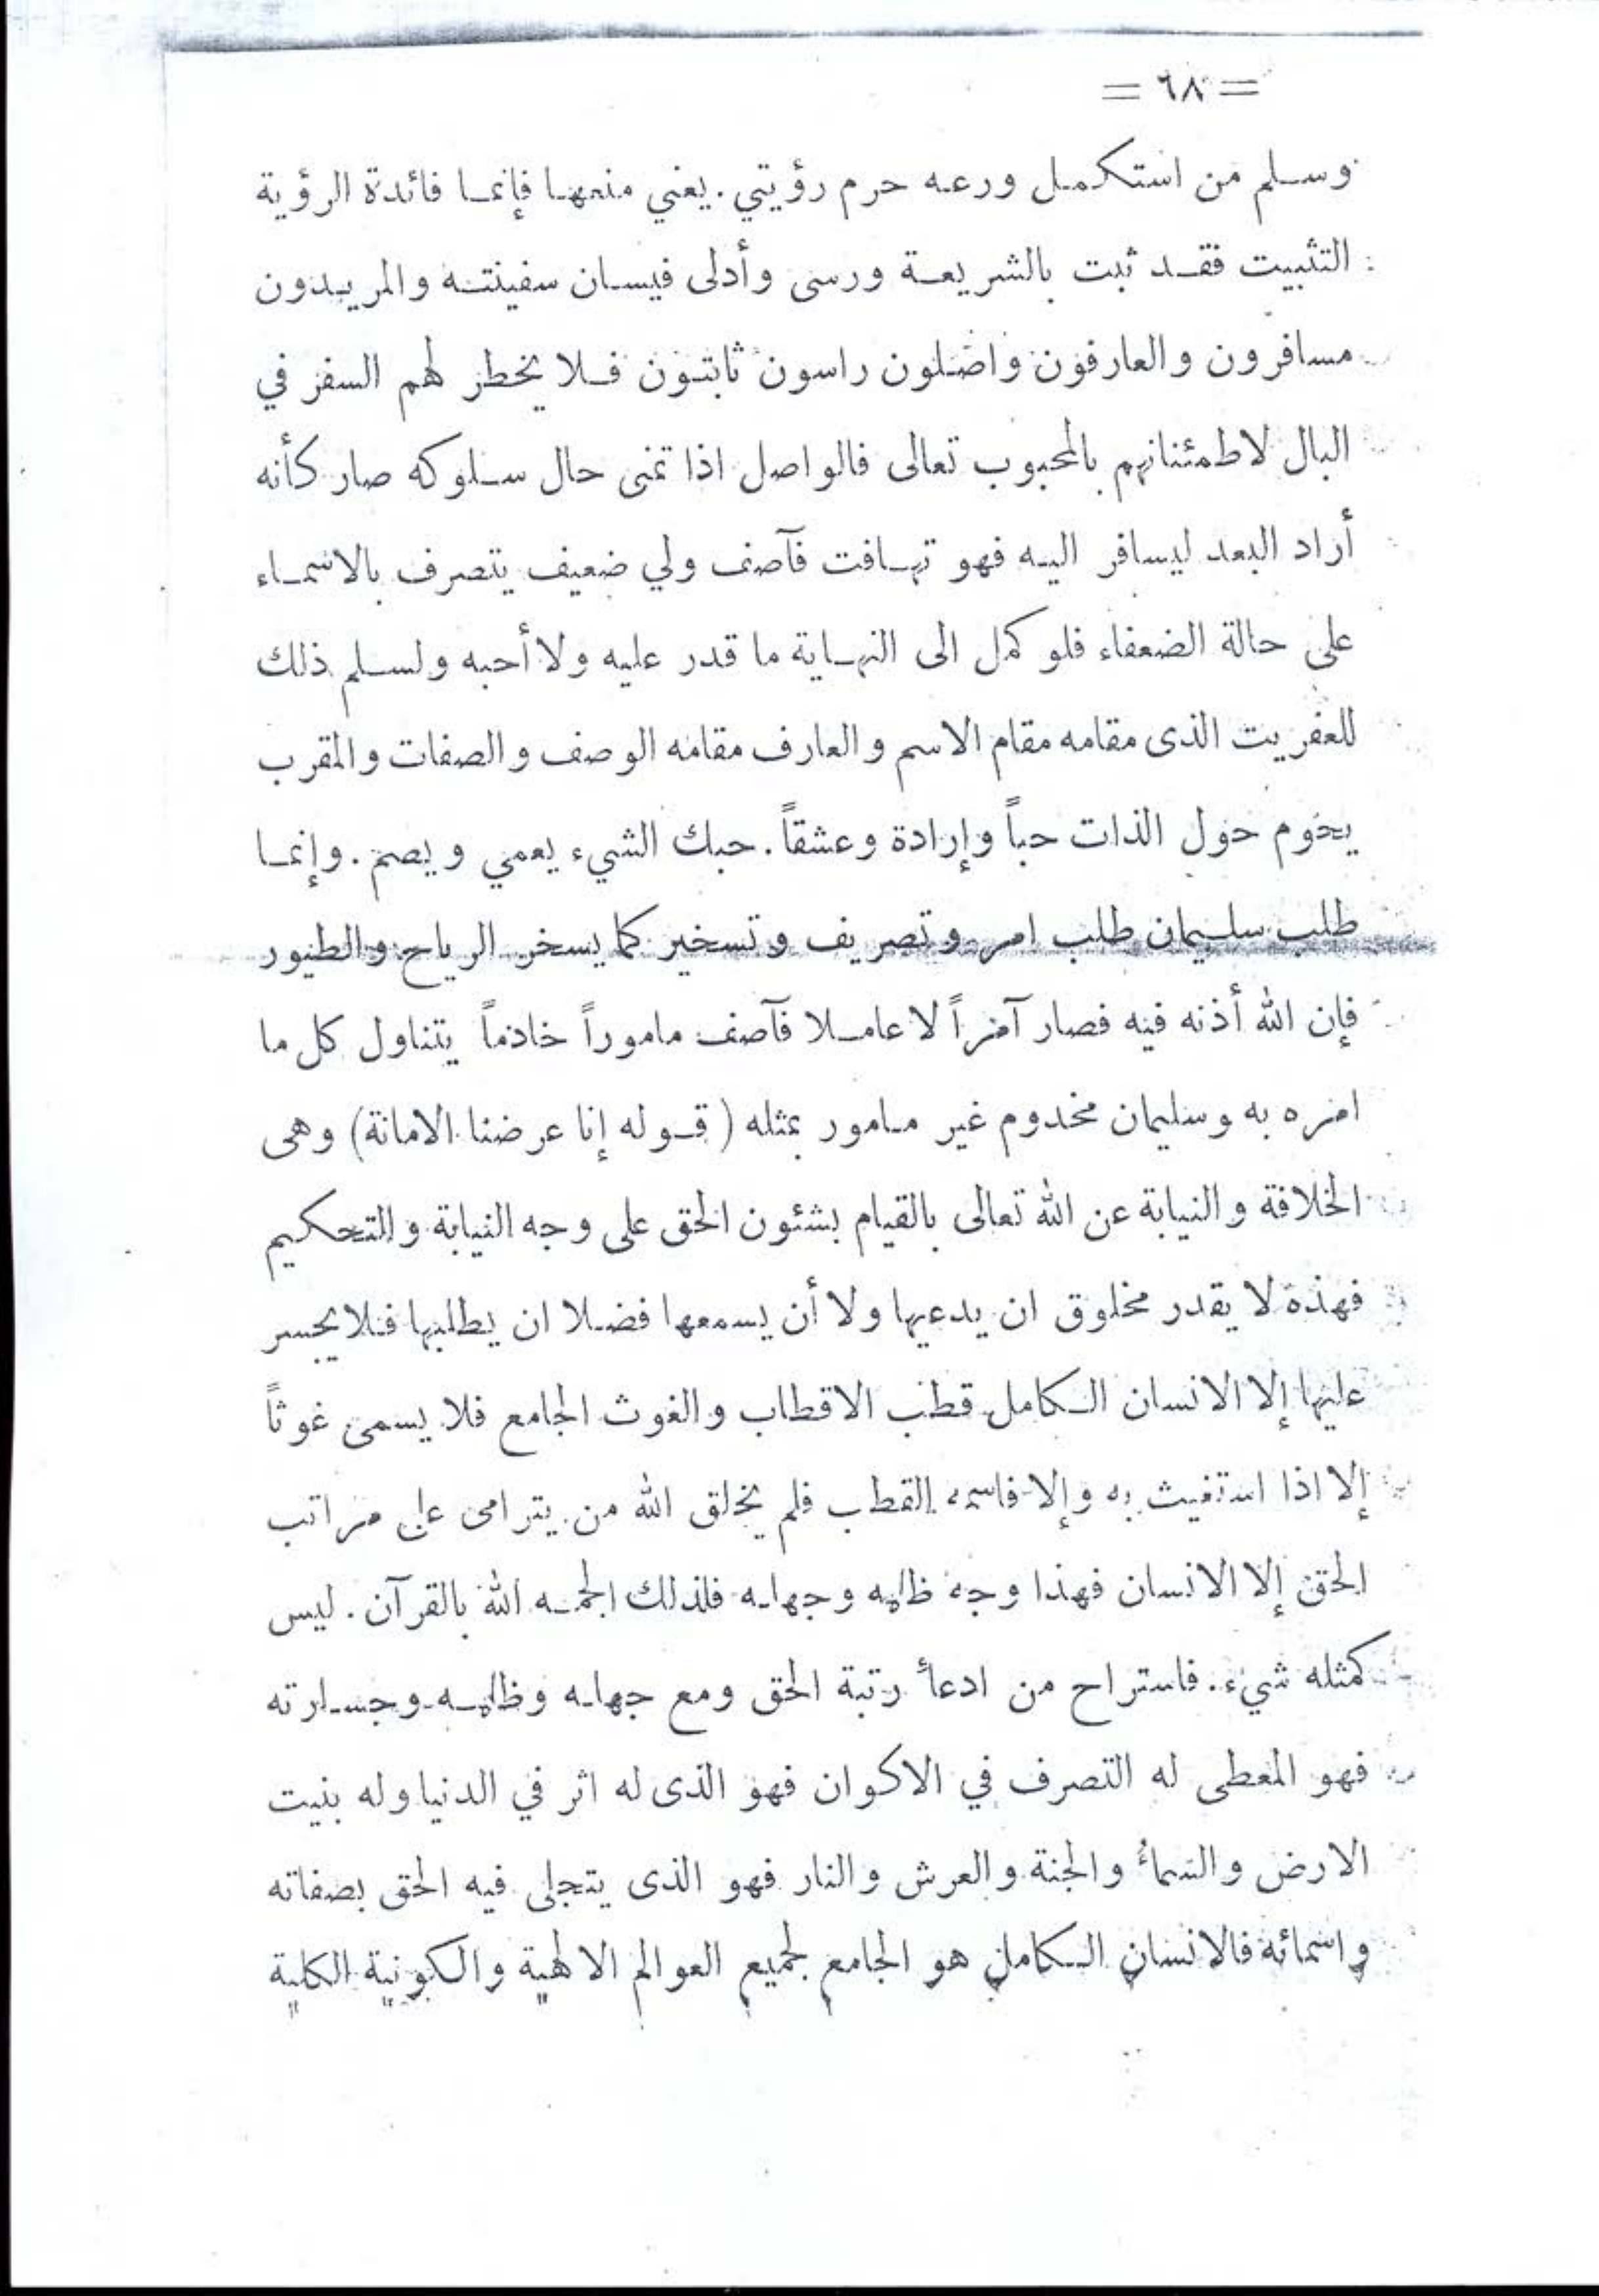 = ٦٨ =
وسلم من استكمل ورعه حرم رؤيتي . يعني منعها فإنما فائدة الرؤية
التثبيت فقد ثبت بالشريعة ورسى وأدلى فيسان سفينته والمريدون
مسافرون والعارفون واصلون راسون ثابتون فلا يخطر لهم السفر في
البال لاطمئنانهم بالمحبوب تعالى فالواصل اذا تمنى حال سلوكه صار كأنه
أراد البعد ليسافر اليه فهو تهافت فآصف ولي ضعيف يتصرف بالاسماء
على حالة الضعفاء فلو كمل الى النهاية ما قدر عليه ولا أحبه ولسلم ذلك
للعفريت الذى مقامه مقام الاسم والعارف مقامه الوصف والصفات والمقرب
يحوم حول الذات حباً وإرادة وعشقاً . حبك الشيء يعمي ويصم . وإنما
طلب سليمان طلب امر وتصريف وتسخير كما يسخر الرياح والطيور
فإن الله أذنه فيه فصار آمراً لا عاملا فآصف ماموراً خادماً يتناول كل ما
امره به وسليمان مخدوم غير مامور بمثله ( قوله إنا عرضنا الامانة ) وهى
الخلافة والنيابة عن الله تعالى بالقيام بشئون الحق على وجه النيابة والتحكيم
فهذه لا يقدر مخلوق ان يدعيها ولا أن يسمعها فضلا ان يطلبها فلا يجسر
عليها إلا الانسان الكامل قطب الاقطاب والغوث الجامع فلا يسمى غوثاً
إلا اذا استغيث به وإلا فاسمه القطب فلم يخلق الله من يترامى على مراتب
الحق إلا الانسان فهذا وجه ظلمه وجهله فلذلك الجمه الله بالقرآن . ليس
كمثله شيء . فاستراح من ادعأ رتبة الحق ومع جهله وظلمه وجسارته
فهو المعطى له التصرف في الاكوان فهو الذى له اثر في الدنيا وله بنيت
الارض والسماءُ والجنة والعرش والنار فهو الذى يتجلى فيه الحق بصفاته
واسمائه فالانسان الكامل هو الجامع لجميع العوالم الالهية والكونية الكلية